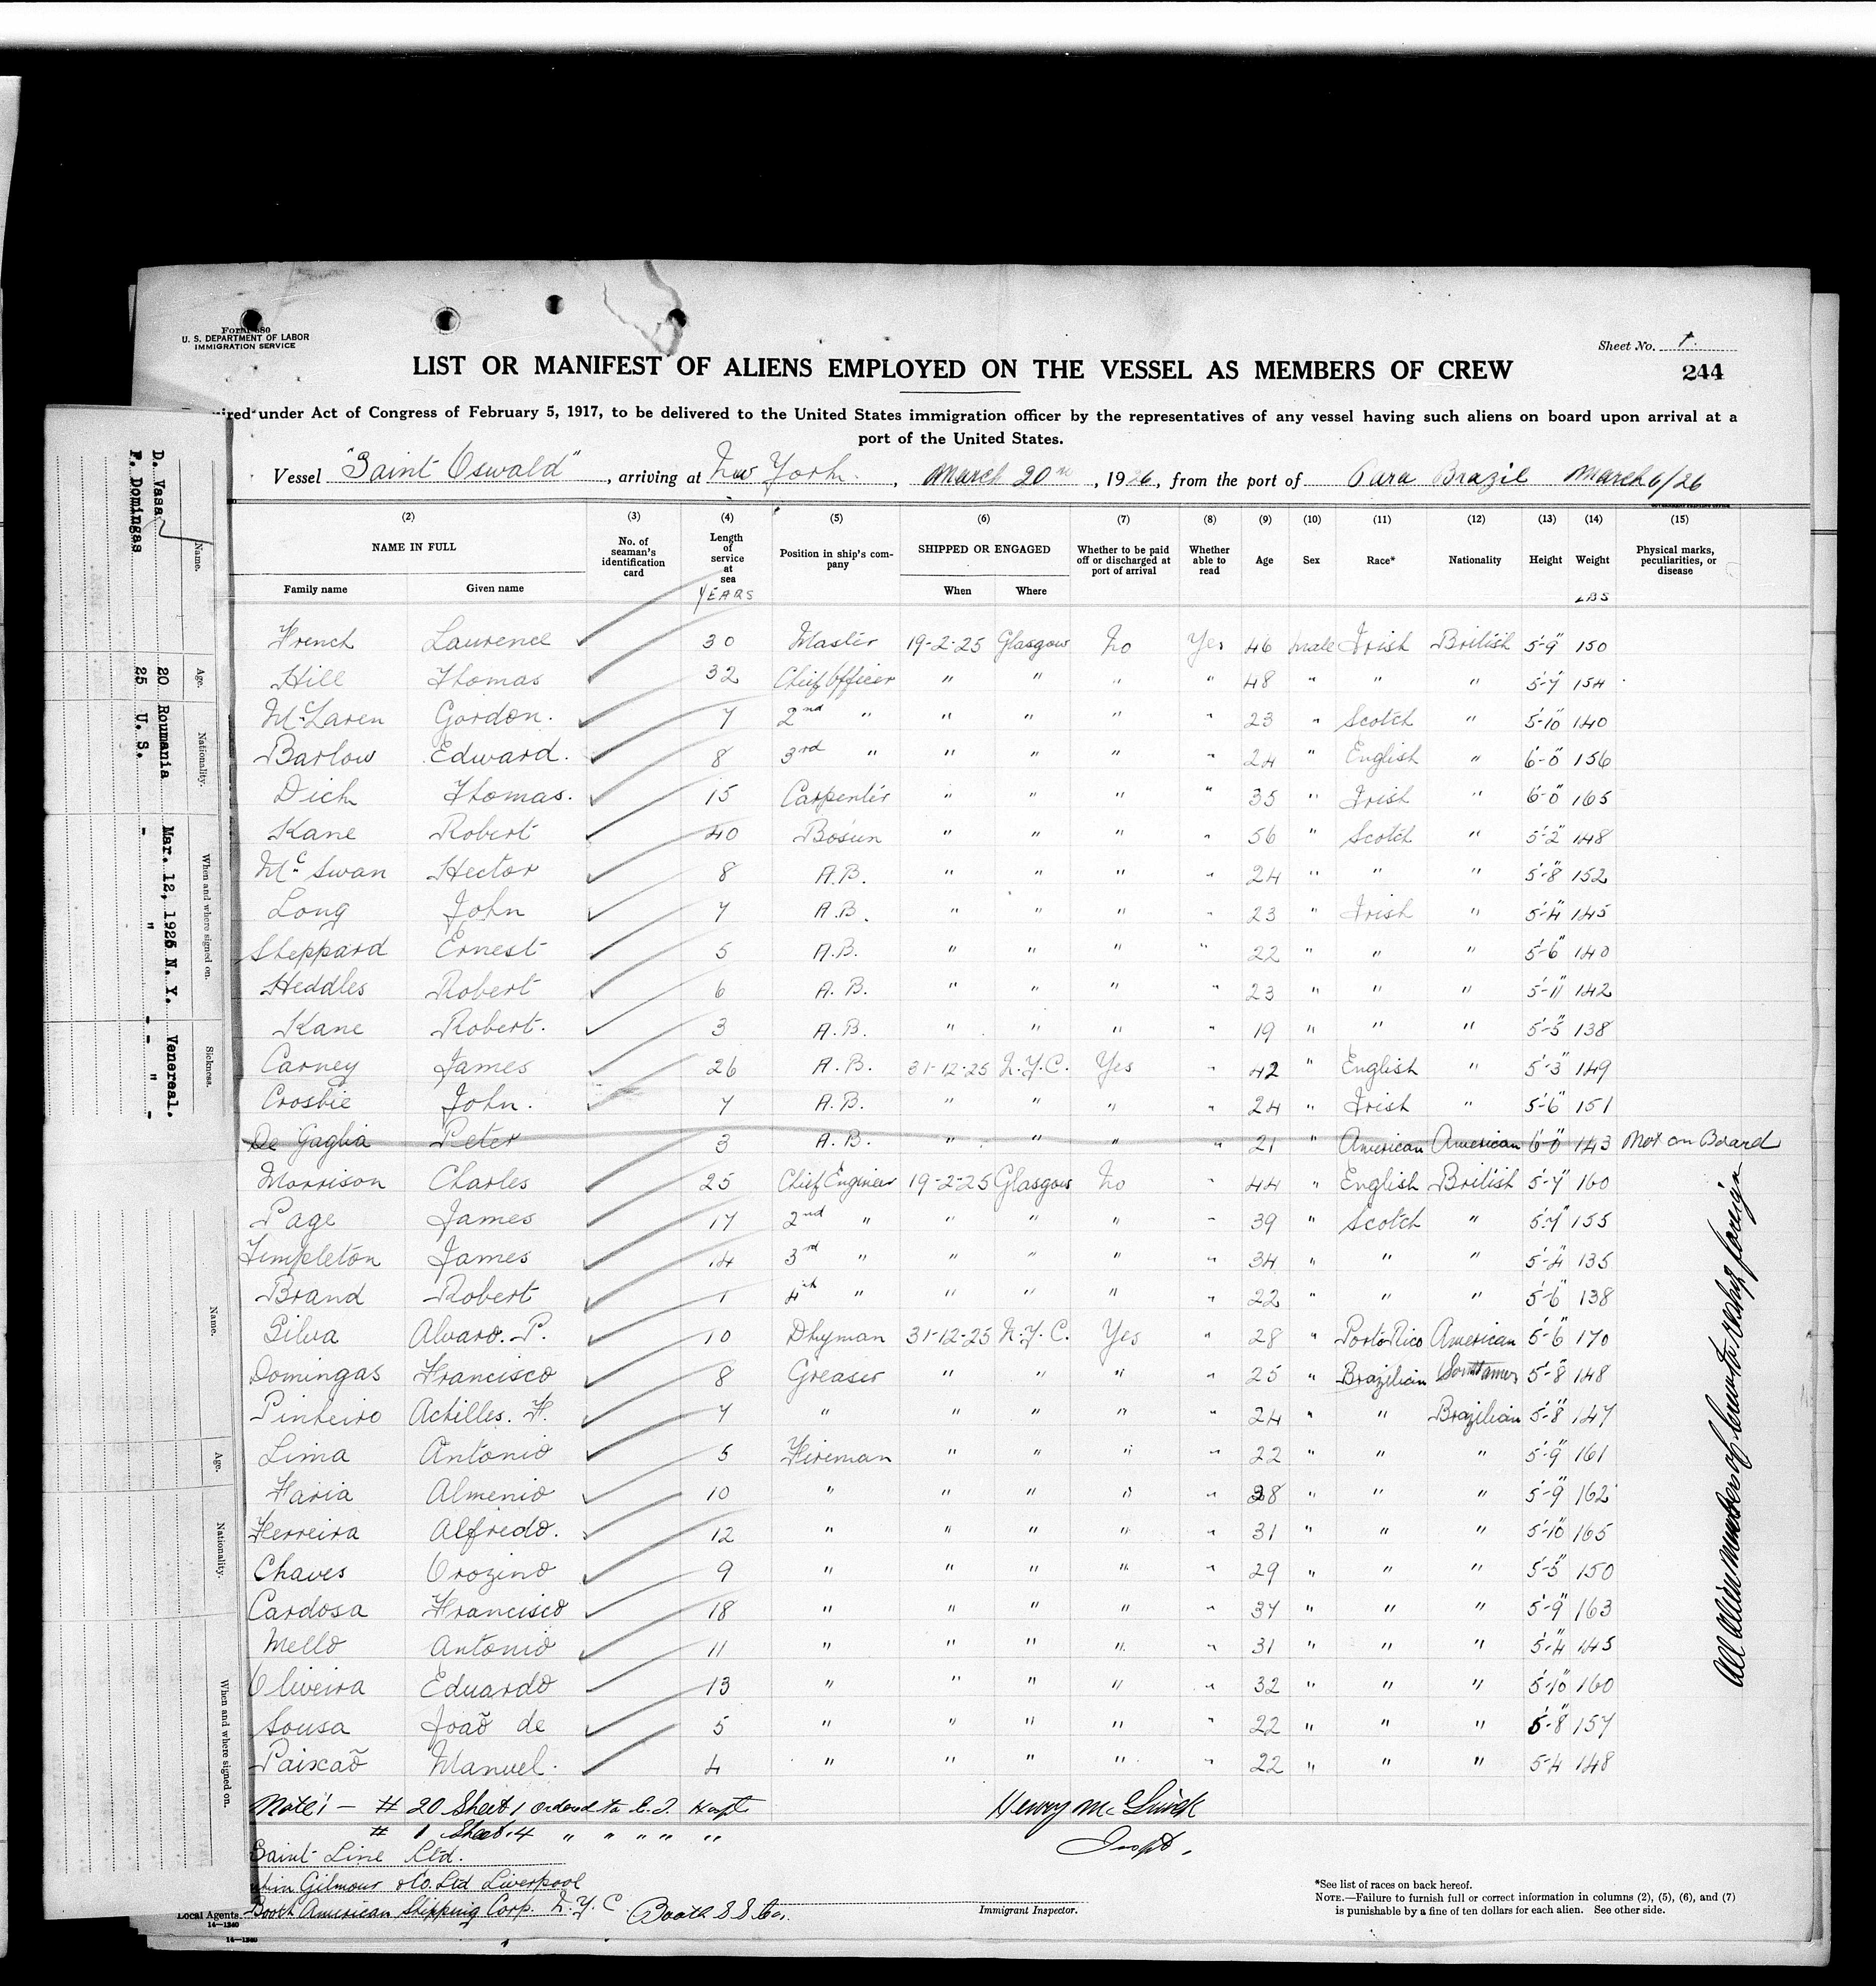 Form 680
U. S. DEPARTMENT OF LABOR
IMMIGRATION SERVICE
Sheet No. 1.
LIST OR MANIFEST OF ALIENS EMPLOYED ON THE VESSEL AS MEMBERS OF CREW
244
ired under Act of Congress of February 5, 1917, to be delivered to the United States immigration officer by the representatives of any vessel having such aliens on board upon arrival at a
port of the United States.
Vessel "Saint Oswald", arriving at New York., March 20th, 1926, from the port of Para Brazil March 6/26
(2) (3) (4) (5) (6) (7) (8) (9) (10) (11) (12) (13) (14) (15)
NAME IN FULL No. of seaman's identification card Length of service at sea Position in ship's company SHIPPED OR ENGAGED Whether to be paid off or discharged at port of arrival Whether able to read Age Sex Race* Nationality Height Weight Physical marks, peculiarities, or disease
Family name Given name YEARS When Where LBS
French Laurence 30 Master 19-2-25 Glasgow No Yes 46 Male Irish British 5'-9" 150
Hill Thomas 32 Chief Officer " " " " 48 " " " 5'-7" 154
McLaren Gordon. 7 2nd " " " " " 23 " Scotch " 5'-10" 140
Barlow Edward. 8 3rd " " " " " 24 " English " 6'-0" 156
Dich Thomas. 15 Carpenter " " " " 35 " Irish " 6'-0" 165
Kane Robert 40 Bosun " " " " 56 " Scotch " 5'-2" 148
McSwan Hector 8 A.B. " " " " 24 " " " 5'-8" 152
Long John 7 A.B. " " " " 23 " Irish " 5'-4" 145
Sheppard Ernest 5 A.B. " " " " 22 " " " 5'-6" 140
Heddles Robert 6 A.B. " " " " 23 " " " 5'-11" 142
Kane Robert. 3 A.B. " " " " 19 " " " 5'-5" 138
Carney James 26 A.B. 31-12-25 N.Y.C. Yes " 42 " English " 5'-3" 149
Crosbie John. 7 A.B. " " " " 24 " Irish " 5'-6" 151
De Gaglia Peter 3 A.B. " " " " 21 " American American 6'-0" 143 Not on Board
Morrison Charles 25 Chief Engineer 19-2-25 Glasgow No " 44 " English British 5'-7" 160
Page James 17 2nd " " " " " 39 " Scotch " 5'-7" 155
Templeton James 14 3rd " " " " " 34 " " " 5'-4" 135
Brand Robert 1 4th " " " " " 22 " " " 5'-6" 138
Silva Alvaro. P. 10 Dkyman 31-12-25 N.Y.C. Yes " 28 " Porto Rico American 5'-6" 170
Domingas Francisco 8 Greaser " " " " 25 " Brazilian 5'-8" 148
Pinheiro Achilles. F. 7 " " " " " 24 " " Brazilian 5'-8" 147
Lima Antonio 5 Fireman " " " " 22 " " " 5'-9" 161
Faria Almenio 10 " " " " " 28 " " " 5'-9" 162
Ferreira Alfredo. 12 " " " " " 31 " " " 5'-10" 165
Chaves Orozino 9 " " " " " 29 " " " 5'-5" 150
Cardosa Francisco 18 " " " " " 37 " " " 5'-9" 163
Mello Antonio 11 " " " " " 31 " " " 5'-4" 145
Oliveira Eduardo 13 " " " " " 32 " " " 5'-10" 160
Sousa João de 5 " " " " " 22 " " " 5'-8" 157
Paixão Manuel. 4 " " " " " 22 " " " 5-4 148
Note: - # 20 Sheet 1 ordered to E. I. Hospt
# 1 Sheet 4 " " " " "
Henry
Inspt.
Saint Line Ltd.
Gilmour & Co. Ltd Liverpool
Local Agents Booth American Shipping Corp. N.Y.C. Booth S S Co.
14-1240
Immigrant Inspector.
*See list of races on back hereof.
NOTE.—Failure to furnish full or correct information in columns (2), (5), (6), and (7)
is punishable by a fine of ten dollars for each alien. See other side.
All Alien members of crew to reship foreign
Name. Age. Nationality. When and where signed on. Sickness.
D. Vasa 20 Roumania Mar. 12, 1926 N. Y. Venereal.
F. Domingas 25 U. S. " " - - " -
Name. Age. Nationality. When and where signed on.